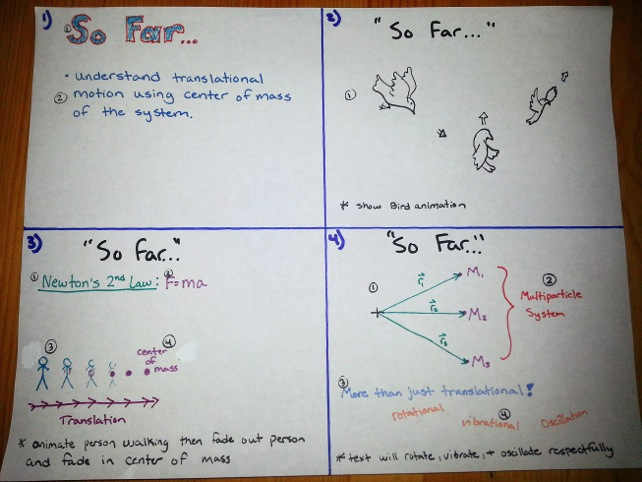 1)
① So Far...
• Understand translational
② motion using center of mass
of the system.
2)
"So Far..."
①
* Show Bird animation
3)
"So Far..."
① Newton's 2nd Law: ② F=ma
③
④
center
of
mass
Translation
* animate person walking then fade out person
and fade in center of mass
4)
"So Far..."
①
r⃗₁
M₁
r⃗₂
M₂
r⃗₃
M₃
②
Multiparticle
System
③
More than just translational!
rotational
④
vibrational
Oscillation
* text will rotate, vibrate, + oscillate respectfully